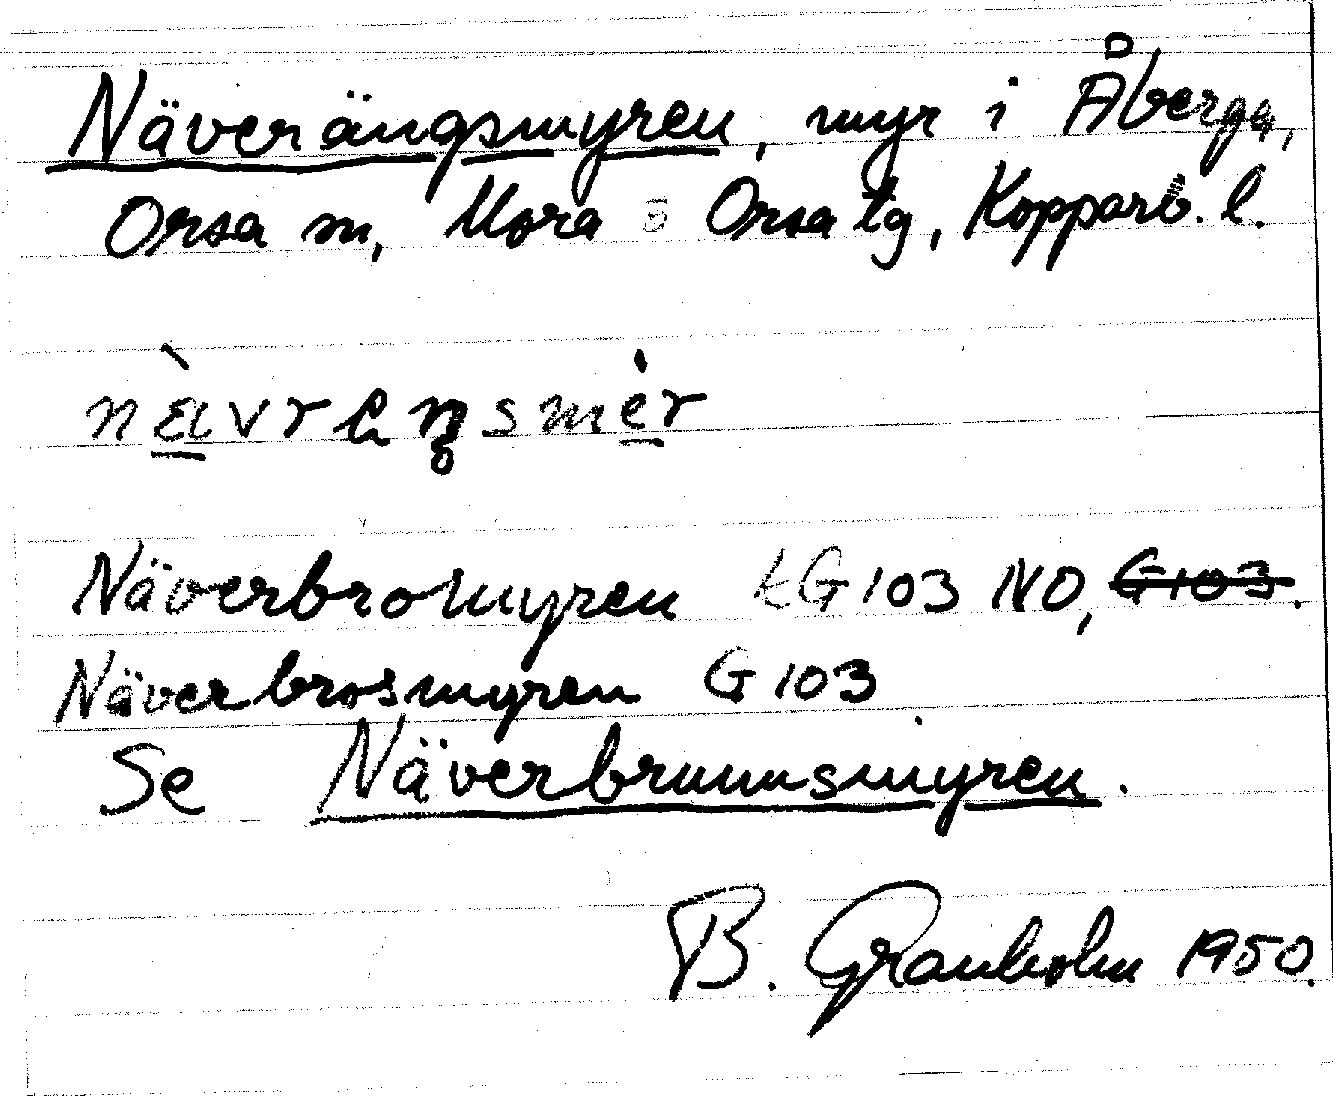 Näverängsmyren, myr i Åberga,
Orsa sn, Mora o Orsa tg, Kopparb. l.
Näverbromyren EG 103 NO, G 103.
Näverbrosmyren G 103
Se Näverbrunnsmyren.
B. Granholm 1950.